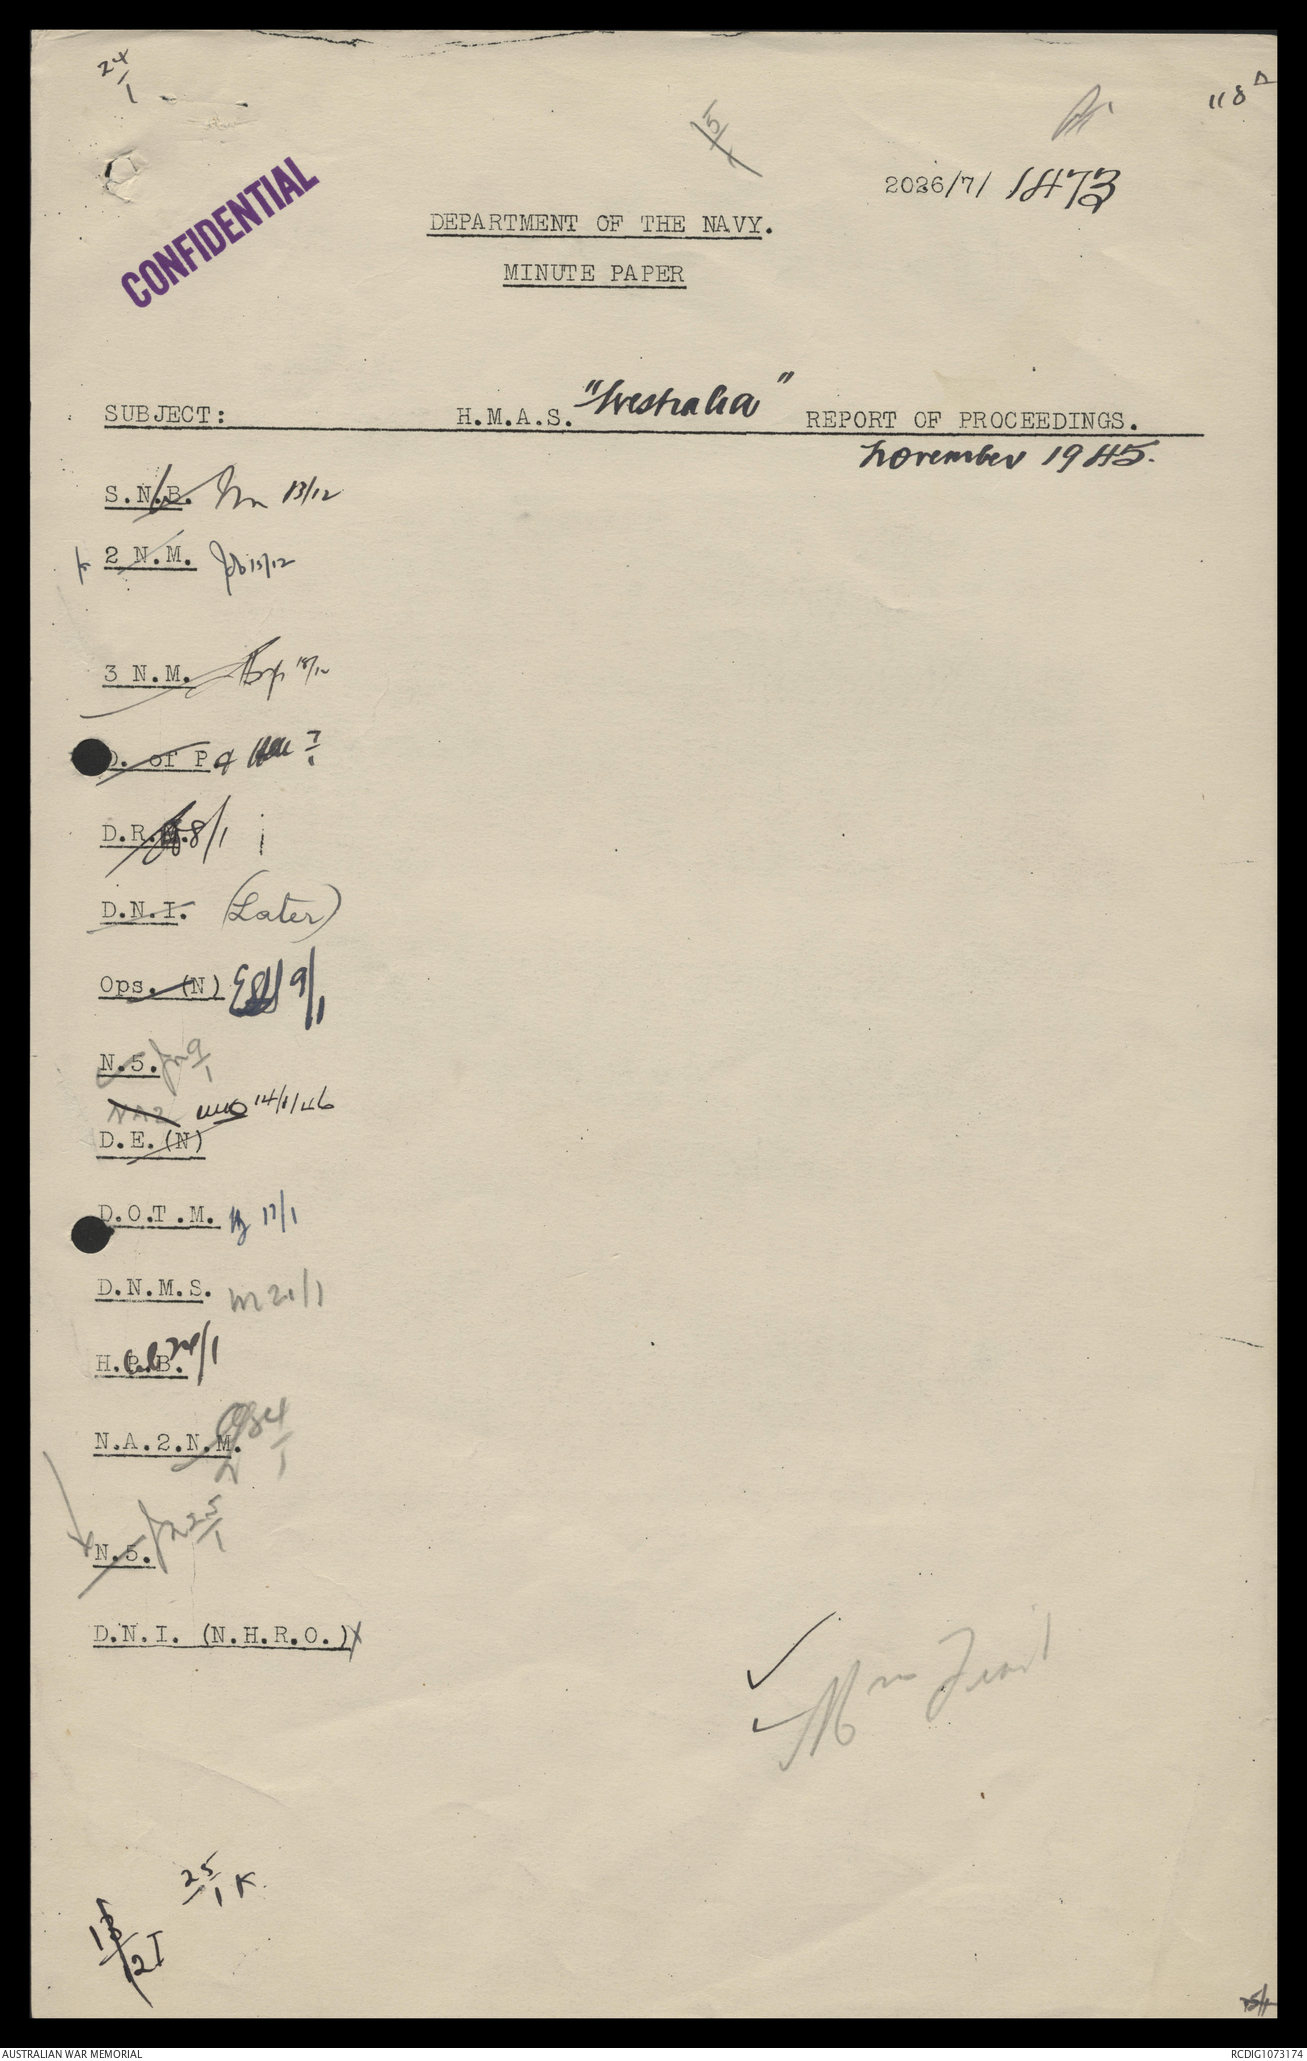 24/1
118
15
2026/7/ 1473
CONFIDENTIAL
DEPARTMENT OF THE NAVY.
MINUTE PAPER
SUBJECT: H.M.A.S. "Westralia" REPORT OF PROCEEDINGS.
November 1945.
S.N.B. 13/12
2 N.M. 15/12
3 N.M. 18/12
D. of P 7/1
D.R.M. 8/1
D.N.I. (Later)
Ops. (N) 9/1
N.5. 9/1
NA2 14/1/46
D.E.(N)
D.O.T.M. 17/1
D.N.M.S. 21/1
H.P.B. 24/1
N.A.2.N.M.
N.5. 25/1
D.N.I. (N.H.R.O.)
25/1 K.
AUSTRALIAN WAR MEMORIAL
RCDIG1073174